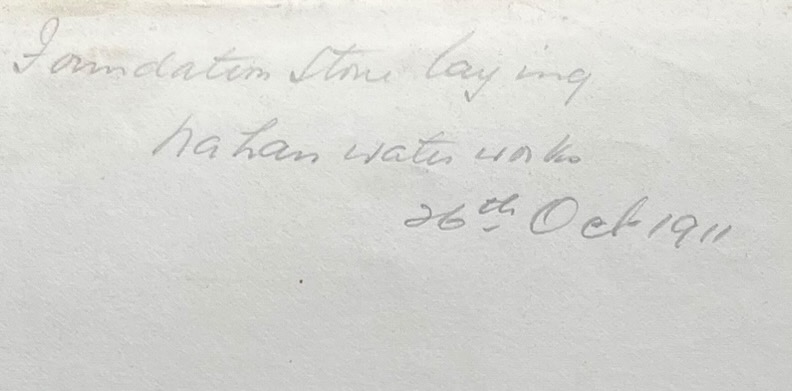 Foundation Stone laying
Nahan water works
26th Oct 1911